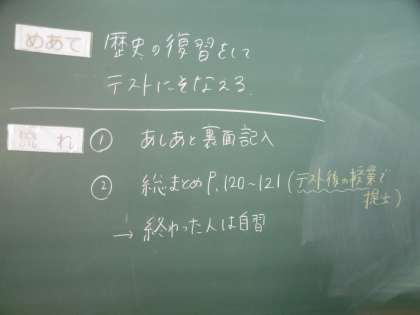 めあて 歴史の復習をして
テストにそなえる。
流れ ① あしあと裏面記入
② 総まとめ P.120~121 (テスト後の授業で
提出)
→ 終わった人は自習